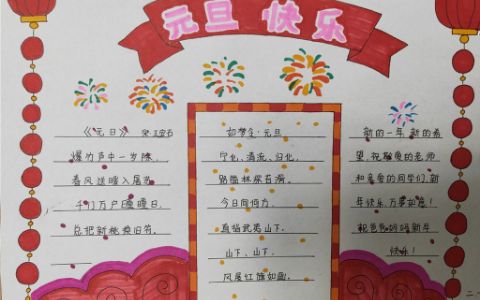 元旦 快乐
《元日》 宋·王安石
爆竹声中一岁除,
春风送暖入屠苏
千门万户曈曈日,
总把新桃换旧符.
如梦令·元旦
宁化、清流、归化,
路隘林深苔滑.
今日向何方,
直指武夷山下.
山下、山下,
风展红旗如画.
新的一年 新的希
望,祝敬爱的老师
和亲爱的同学们,新
年快乐,万事如意!
祝爸爸妈妈新年
快乐!